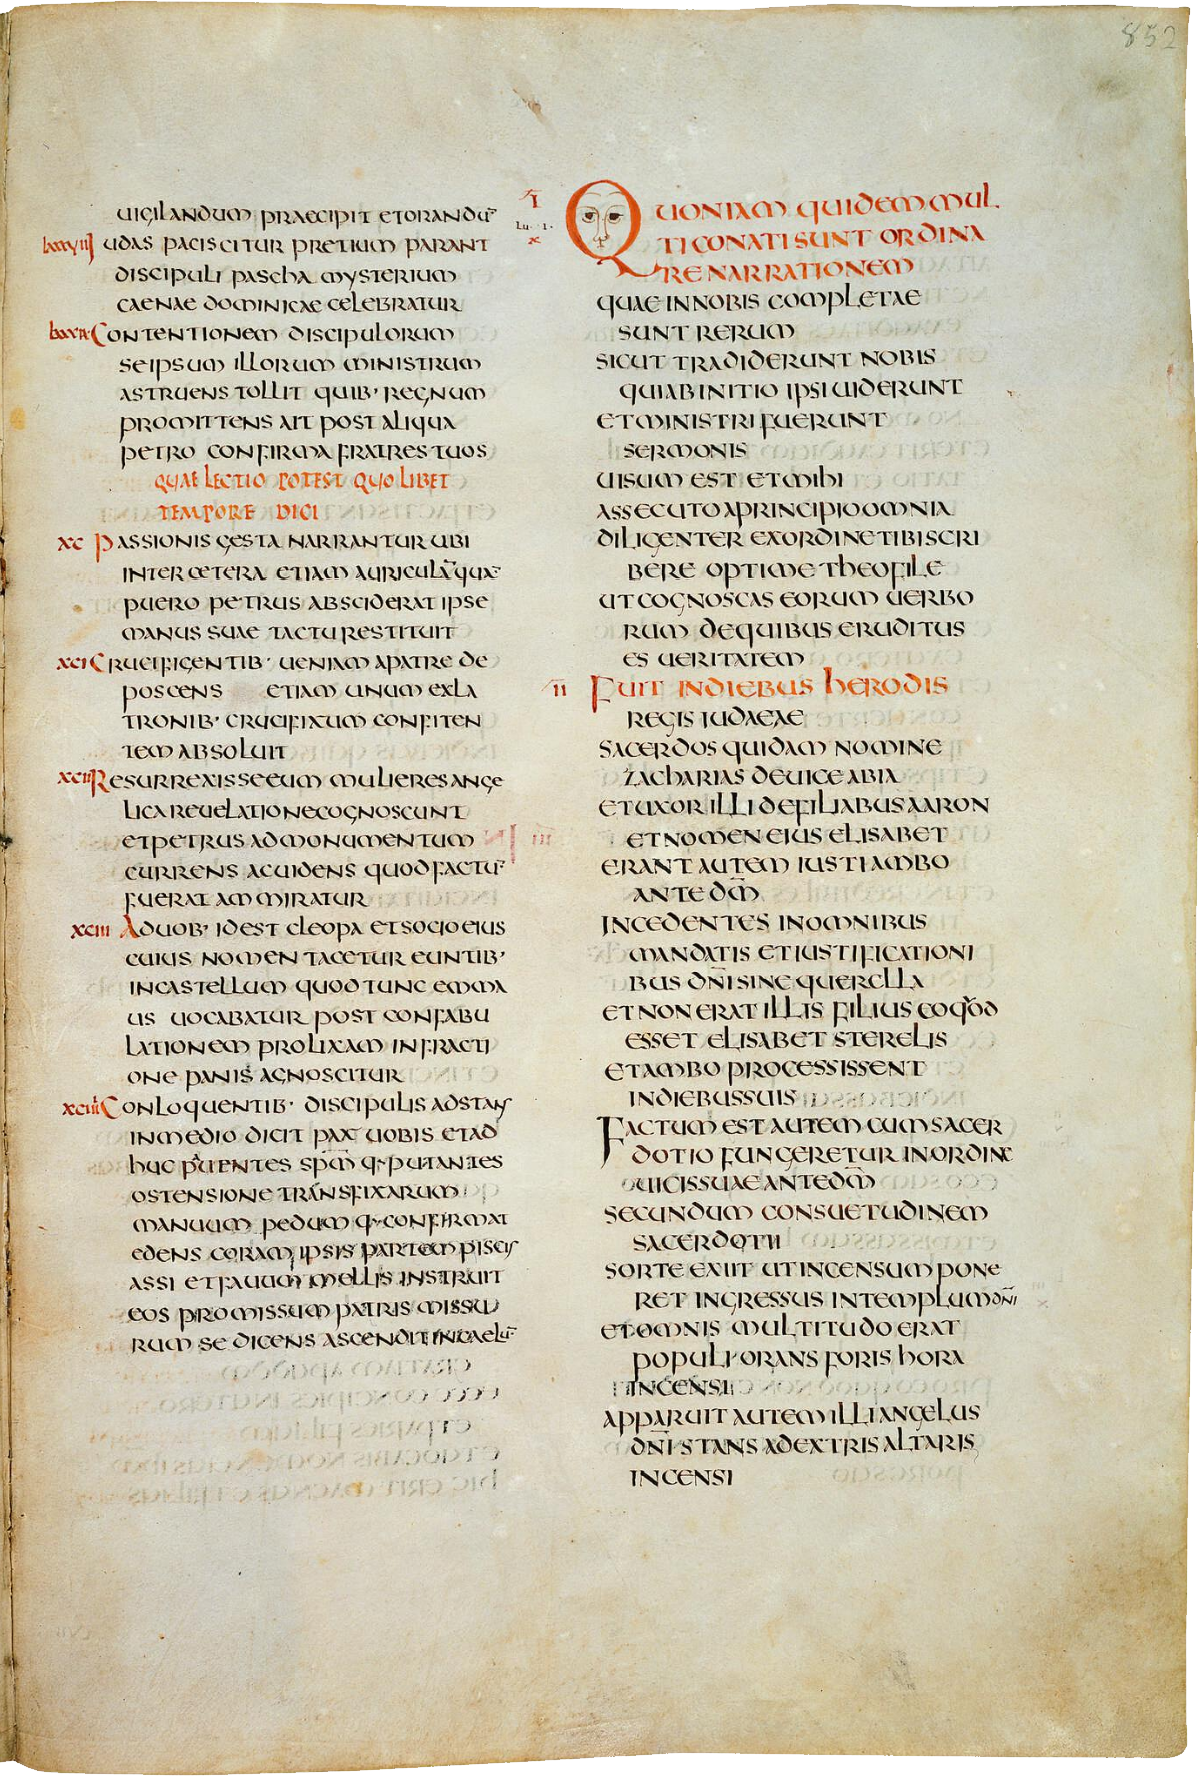 852
UIGILANDUM PRAECIPIT ETORANDU̅
lxxxuiiii UDAS PACISCITUR PRETIUM PARANT
DISCIPULI PASCHA MYSTERIUM
CAENAE DOMINICAE CELEBRATUR
CONTENTIONEM DISCIPULORUM
SEIPSUM ILLORUM MINISTRUM
ASTRUENS TOLLIT QUIB· REGNUM
PROMITTENS AIT POST ALIQUA
PETRO CONFIRMA FRATRES TUOS
QUAE LECTIO POTEST QUOLIBET
TEMPORE DICI
XC PASSIONIS GESTA NARRANTUR UBI
INTER CETERA ETIAM AURICULA̅ QUA̅
PUERO PETRUS ABSCIDERAT IPSE
MANUS SUAE TACTU RESTITUIT
XCI CRUCIFIGENTIB· UENIAM APATRE DE
POSCENS ETIAM UNUM EXLA
TRONIB· CRUCIFIXUM CONFITEN
TEM ABSOLUIT
XCII RESURREXISSEEUM MULIERES ANGE
LICA REUELATIONE COGNOSCUNT
ETPETRUS ADMONUMENTUM
CURRENS ACUIDENS QUOD FACTU̅
FUERAT AMMIRATUR
XCIII ADUOB· IDEST CLEOPA ETSOCIO EIUS
CUIUS NOMEN TACETUR EUNTIB·
INCASTELLUM QUOD TUNC EMMA
US UOCABATUR POST CONFABU
LATIONEM PROLIXAM INFRACTI
ONE PANIS AGNOSCITUR
XCIIII CONLOQUENTIB· DISCIPULIS ADSTANS
INMEDIO DICIT PAX UOBIS ETAD
HUC PAUENTES SPM̅ Q· PUTANTES
OSTENSIONE TRANSFIXARUM
MANUUM PEDUM Q· CONFIRMAT
EDENS CORAM IPSIS PARTEM PISCIS
ASSI ETFAUUM MELLIS INSTRUIT
EOS PROMISSUM PATRIS MISSU
RUM SE DICENS ASCENDIT INCAELU̅
I
Lu· I·
X
QUONIAM QUIDEM MUL
TI CONATI SUNT ORDINA
RE NARRATIONEM
QUAE INNOBIS COMPLETAE
SUNT RERUM
SICUT TRADIDERUNT NOBIS
QUIABINITIO IPSI UIDERUNT
ETMINISTRI FUERUNT
SERMONIS
UISUM EST ETMIHI
ASSECUTO APRINCIPIO OMNIA
DILIGENTER EXORDINE TIBI SCRI
BERE OPTIME THEOFILE
UT COGNOSCAS EORUM UERBO
RUM DEQUIBUS ERUDITUS
ES UERITATEM
II FUIT INDIEBUS HERODIS
REGIS IUDAEAE
SACERDOS QUIDAM NOMINE
ZACHARIAS DEUICE ABIA
ETUXOR ILLI DEFILIABUS AARON
ETNOMEN EIUS ELISABET
ERANT AUTEM IUSTI AMBO
ANTE DM̅
INCEDENTES INOMNIBUS
MANDATIS ETIUSTIFICATIONI
BUS DN̅I SINE QUERELLA
ETNON ERAT ILLIS FILIUS EOQUOD
ESSET ELISABET STERELIS
ETAMBO PROCESSISSENT
INDIEBUSSUIS
FACTUM EST AUTEM CUM SACER
DOTIO FUNGERETUR INORDINE
UICISSUAE ANTEDM̅
SECUNDUM CONSUETUDINEM
SACERDOTII
SORTE EXIIT UT INCENSUM PONE
RET INGRESSUS INTEMPLUM DN̅I
ETOMNIS MULTITUDO ERAT
POPULI ORANS FORIS HORA
INCENSI
APPARUIT AUTEM ILLI ANGELUS
DN̅I STANS ADEXTRIS ALTARIS
INCENSI